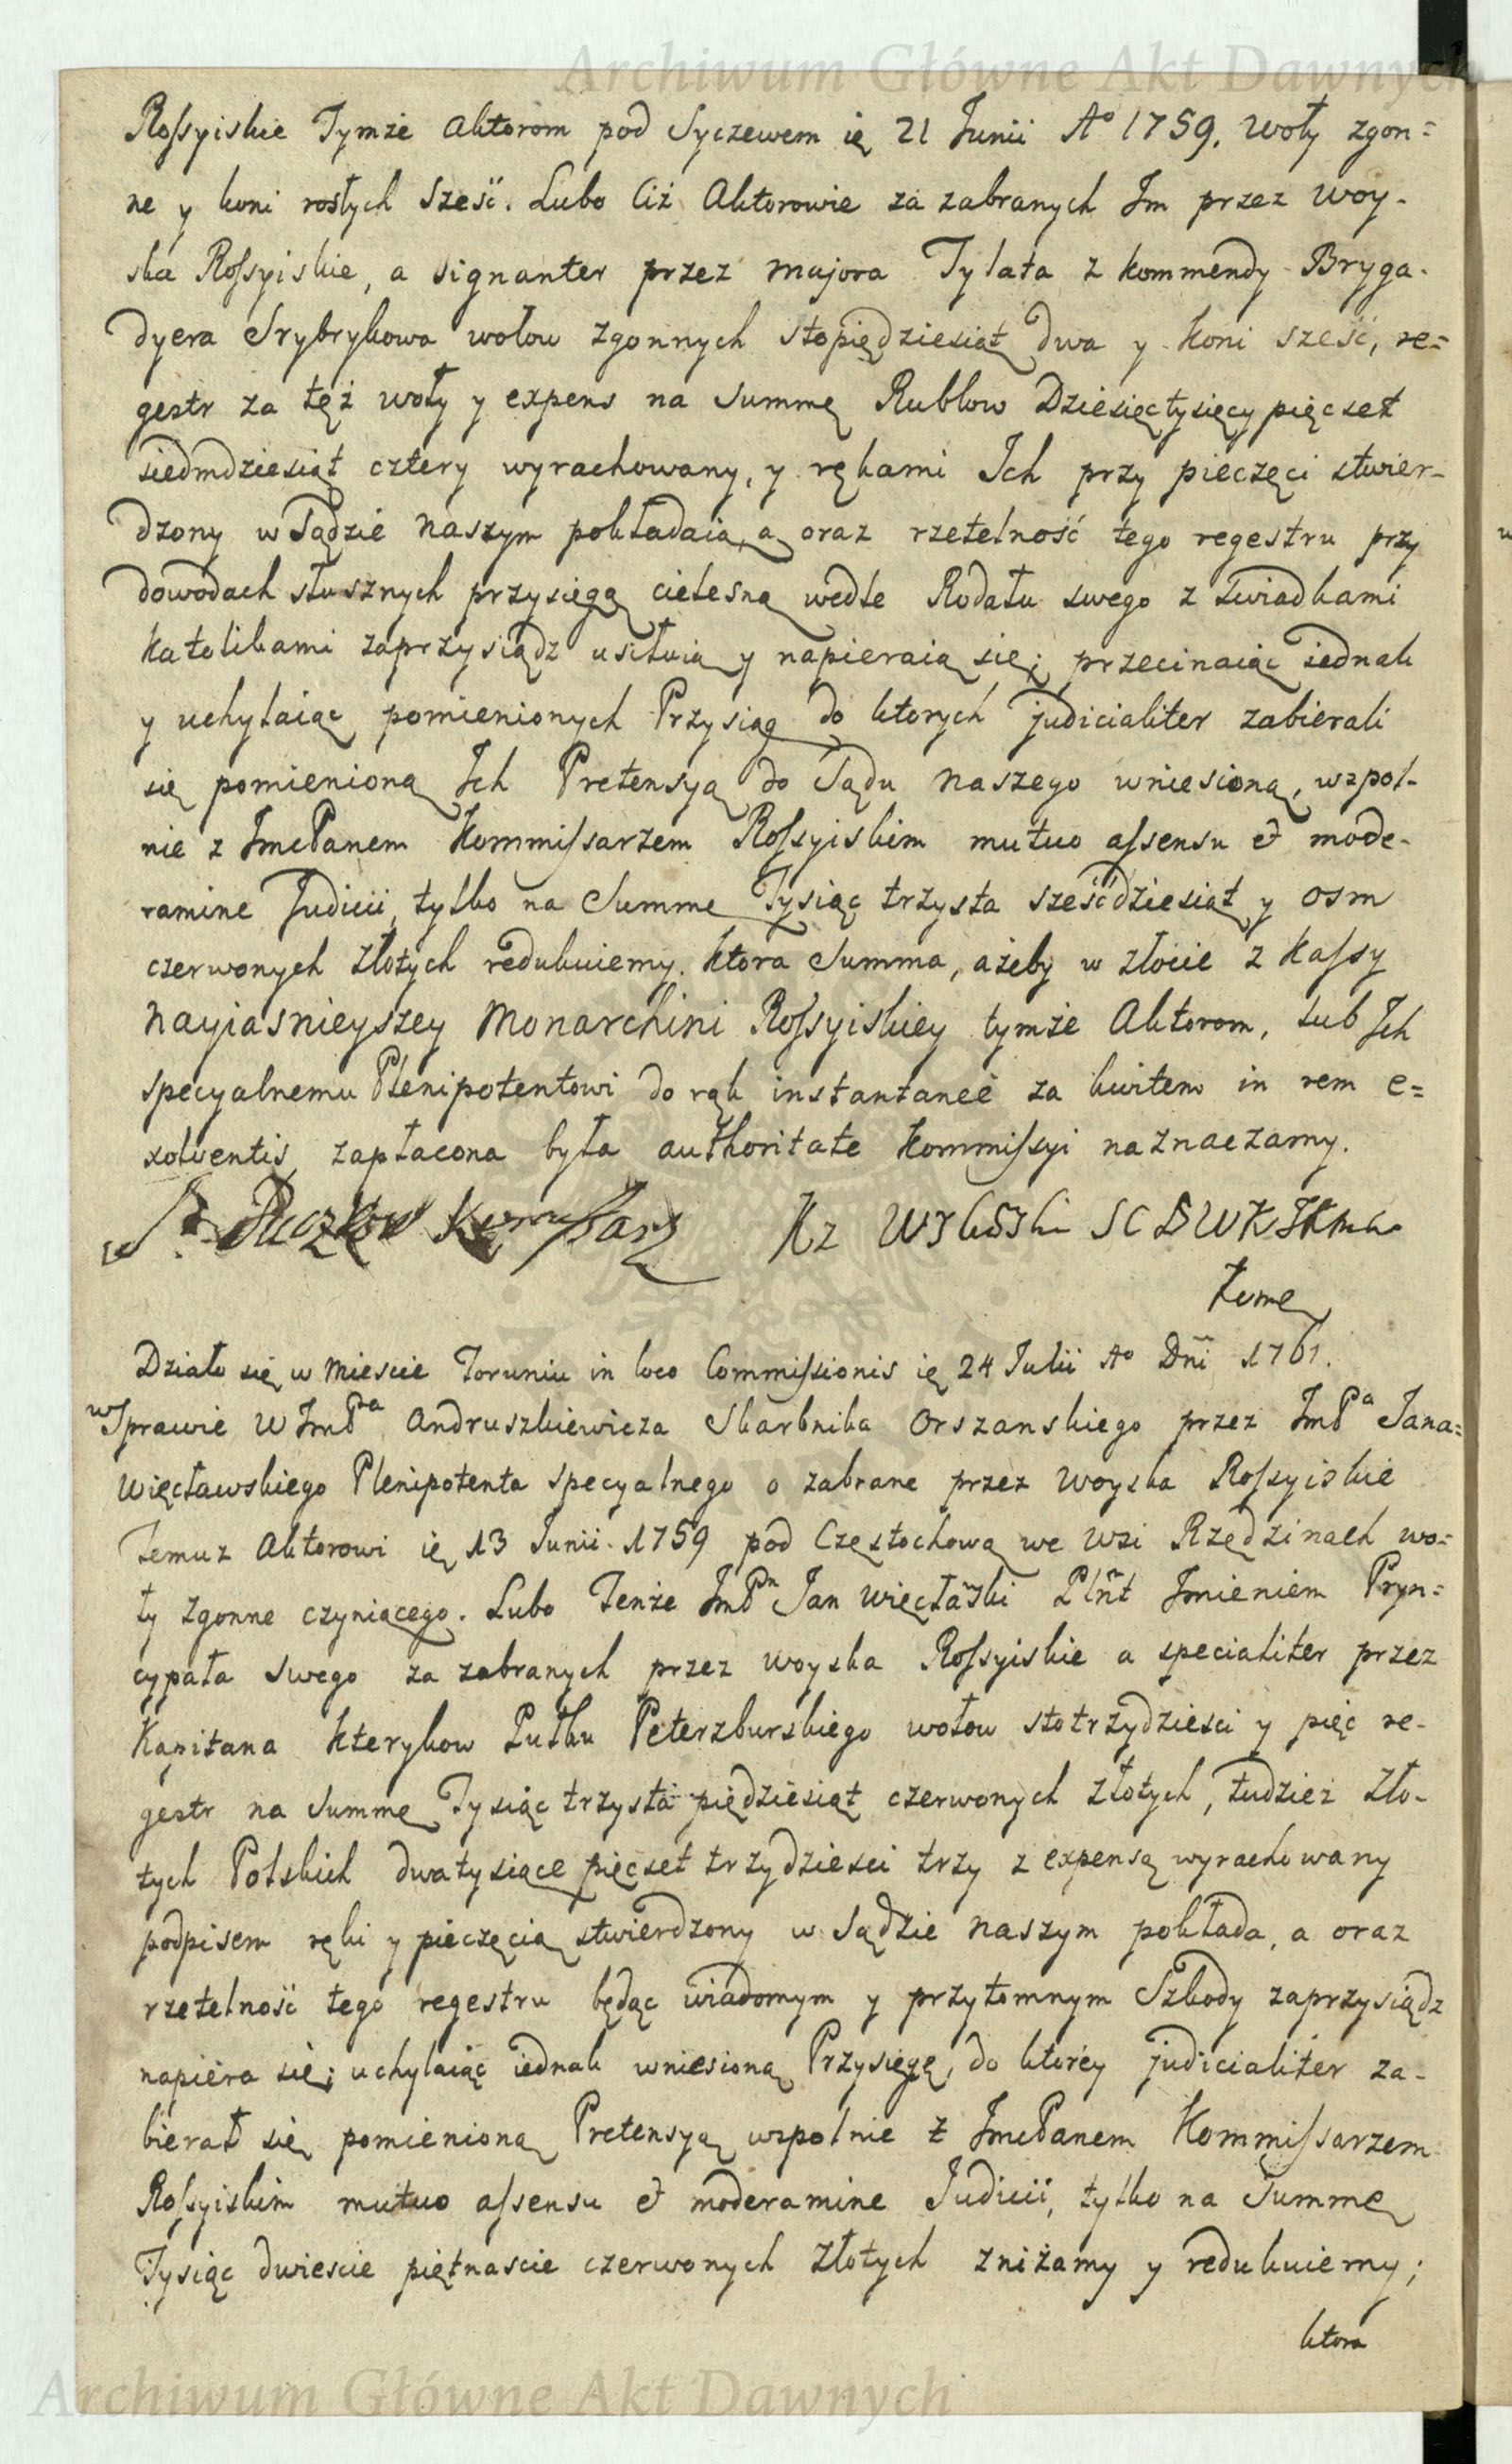 Archiwum Główne Akt Dawnych
Rossyiskie Tymże Aktorom pod Syczewem ię 21 Junii Aº 1759. woły zgon=
ne y koni rosłych sześć. Lubo Ciż Aktorowie za zabranych Im przez woy-
ska Rossyiskie, a signanter przez majora Tylata z kommendy Bryga-
dyera Srybrykowa wołow zgonnych stopięдziesiąt dwa y koni sześć, re=
gestr za też woły y expens na summę Rublow Dziesięctysięcy pięcset
siedmdziesiąt cztery wyrachowany, y rękami Ich przy pieczęci stwier-
dzony w Sądzie naszym pokładaią, a oraz rzetelność tego regestru przy
dowodach słusznych przysięgą cielesną wedle Rodału swego z swiadkami
katolikami zaprzysiądz usiłuią y napieraią się; przecinaiąc iednak
y uchylaiąc pomienionych Przysiąg do ktorych judicialiter zabierali
się pomienioną Ich Pretensyą do Sądu naszego wniesioną, wzpol-
nie z ImcPanem Kommissarzem Rossyiskim mutuo assensu et mode-
ramine Judicii, tylko na Summe Tysiąc trzysta sześćdziesiąt y osm
czerwonych złotych redukuiemy. ktora Summa, ażeby w złocie z Kassy
Nayiasnieyszey Monarchini Rossyiskiey tymże Aktorom, lub Ich
specyalnemu Plenipotentowi do rąk instantaneè za kwitem in rem e=
xolventis zapłacona była authoritate Kommissyi naznaczamy.
Puczkow Komissarz
Działo się w Miescie Toruniu in loco Commissionis ię 24 Julii Aº Dñi 1761.
w Sprawie W ImPª Andruszkiewicza Skarbnika Orszanskiego przez ImPª Jana=
Więcławskiego Plenipotenta specyalnego o zabrane przez woyska Rossyiskie
Temuz Aktorowi ię 13 Junii 1759 pod Częstochową we wsi Rzędzinach wo=
ły zgonne czyniącego. Lubo Tenże ImPn Jan Więcław̃ski Plñt Imieniem Pryn=
cypała swego za zabranych przez woyska Rossyiskie a specialiter przez
Kapitana Kterykow Pułku Peterzburskiego wołow stotrzydziesci y pięc re-
gestr na summę Tysiąc trzysta pięдziesiąt czerwonych złotych, tudziez zło-
tych Polskich dwatysiące pięcset trzydziesci trzy z expensą wyrachowany
podpisem ręki y pieczęcią stwierdzony w Sądzie naszym pokłada, a oraz
rzetelność tego regestru będąc wiadomym y przytomnym Szkody zaprzysiądz
napiera się; uchylaiąc iednak wniesioną Przysięgę, do ktorey judicialiter za-
bierał się pomienioną Pretensyą wzpolnie z ImcPanem Kommissarzem
Rossyiskim mutuo assensu et moderamine Judicii, tylko na Summę
Tysiąc dwiescie piętnascie czerwonych złotych zniżamy y redukuiemy;
ktora
Archiwum Główne Akt Dawnych